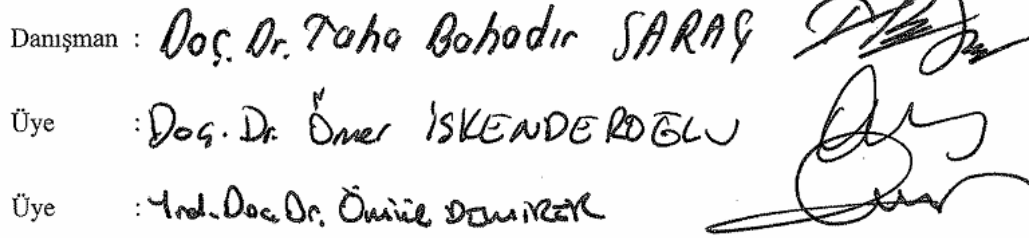 Danışman : Doç. Dr. Taha Bahadır SARAÇ
Üye : Doç. Dr. Ömer İSKENDEROĞLU
Üye : Yrd. Doç. Dr. DEMİRER